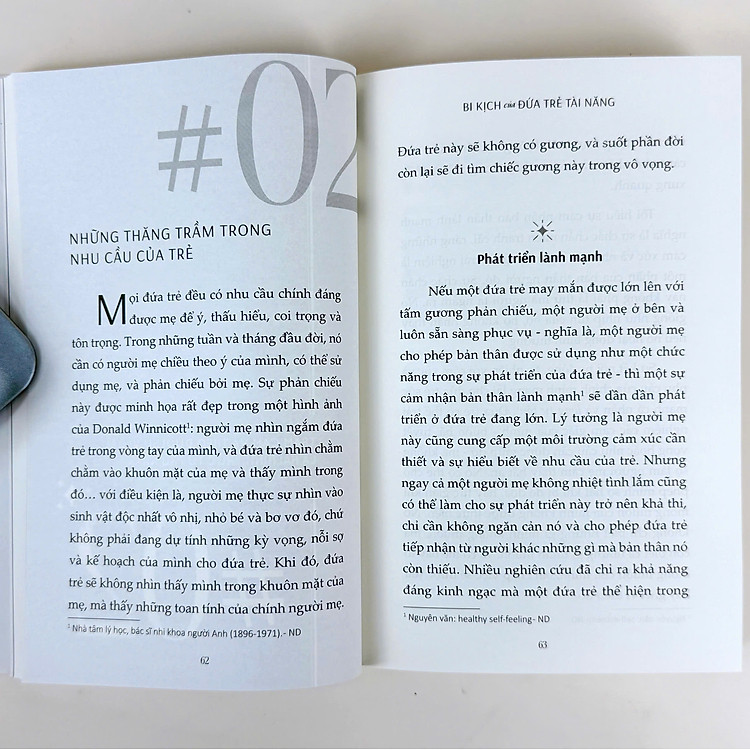 #02
NHỮNG THĂNG TRẦM TRONG
NHU CẦU CỦA TRẺ
Mọi đứa trẻ đều có nhu cầu chính đáng
được mẹ để ý, thấu hiểu, coi trọng và
tôn trọng. Trong những tuần và tháng đầu đời, nó
cần có người mẹ chiều theo ý của mình, có thể sử
dụng mẹ, và phản chiếu bởi mẹ. Sự phản chiếu
này được minh họa rất đẹp trong một hình ảnh
của Donald Winnicott¹: người mẹ nhìn ngắm đứa
trẻ trong vòng tay của mình, và đứa trẻ nhìn chằm
chằm vào khuôn mặt của mẹ và thấy mình trong
đó... với điều kiện là, người mẹ thực sự nhìn vào
sinh vật độc nhất vô nhị, nhỏ bé và bơ vơ đó, chứ
không phải đang dự tính những kỳ vọng, nỗi sợ
và kế hoạch của mình cho đứa trẻ. Khi đó, đứa
trẻ sẽ không nhìn thấy mình trong khuôn mặt của
mẹ, mà thấy những toan tính của chính người mẹ.
¹ Nhà tâm lý học, bác sĩ nhi khoa người Anh (1896-1971).- ND
62
BI KỊCH của ĐỨA TRẺ TÀI NĂNG
Đứa trẻ này sẽ không có gương, và suốt phần đời
còn lại sẽ đi tìm chiếc gương này trong vô vọng.
Phát triển lành mạnh
Nếu một đứa trẻ may mắn được lớn lên với
tấm gương phản chiếu, một người mẹ ở bên và
luôn sẵn sàng phục vụ - nghĩa là, một người mẹ
cho phép bản thân được sử dụng như một chức
năng trong sự phát triển của đứa trẻ - thì một sự
cảm nhận bản thân lành mạnh¹ sẽ dần dần phát
triển ở đứa trẻ đang lớn. Lý tưởng là người mẹ
này cũng cung cấp một môi trường cảm xúc cần
thiết và sự hiểu biết về nhu cầu của trẻ. Nhưng
ngay cả một người mẹ không nhiệt tình lắm cũng
có thể làm cho sự phát triển này trở nên khả thi,
chỉ cần không ngăn cản nó và cho phép đứa trẻ
tiếp nhận từ người khác những gì mà bản thân nó
còn thiếu. Nhiều nghiên cứu đã chỉ ra khả năng
đáng kinh ngạc mà một đứa trẻ thể hiện trong
¹ Nguyên văn: healthy self-feeling- ND
63